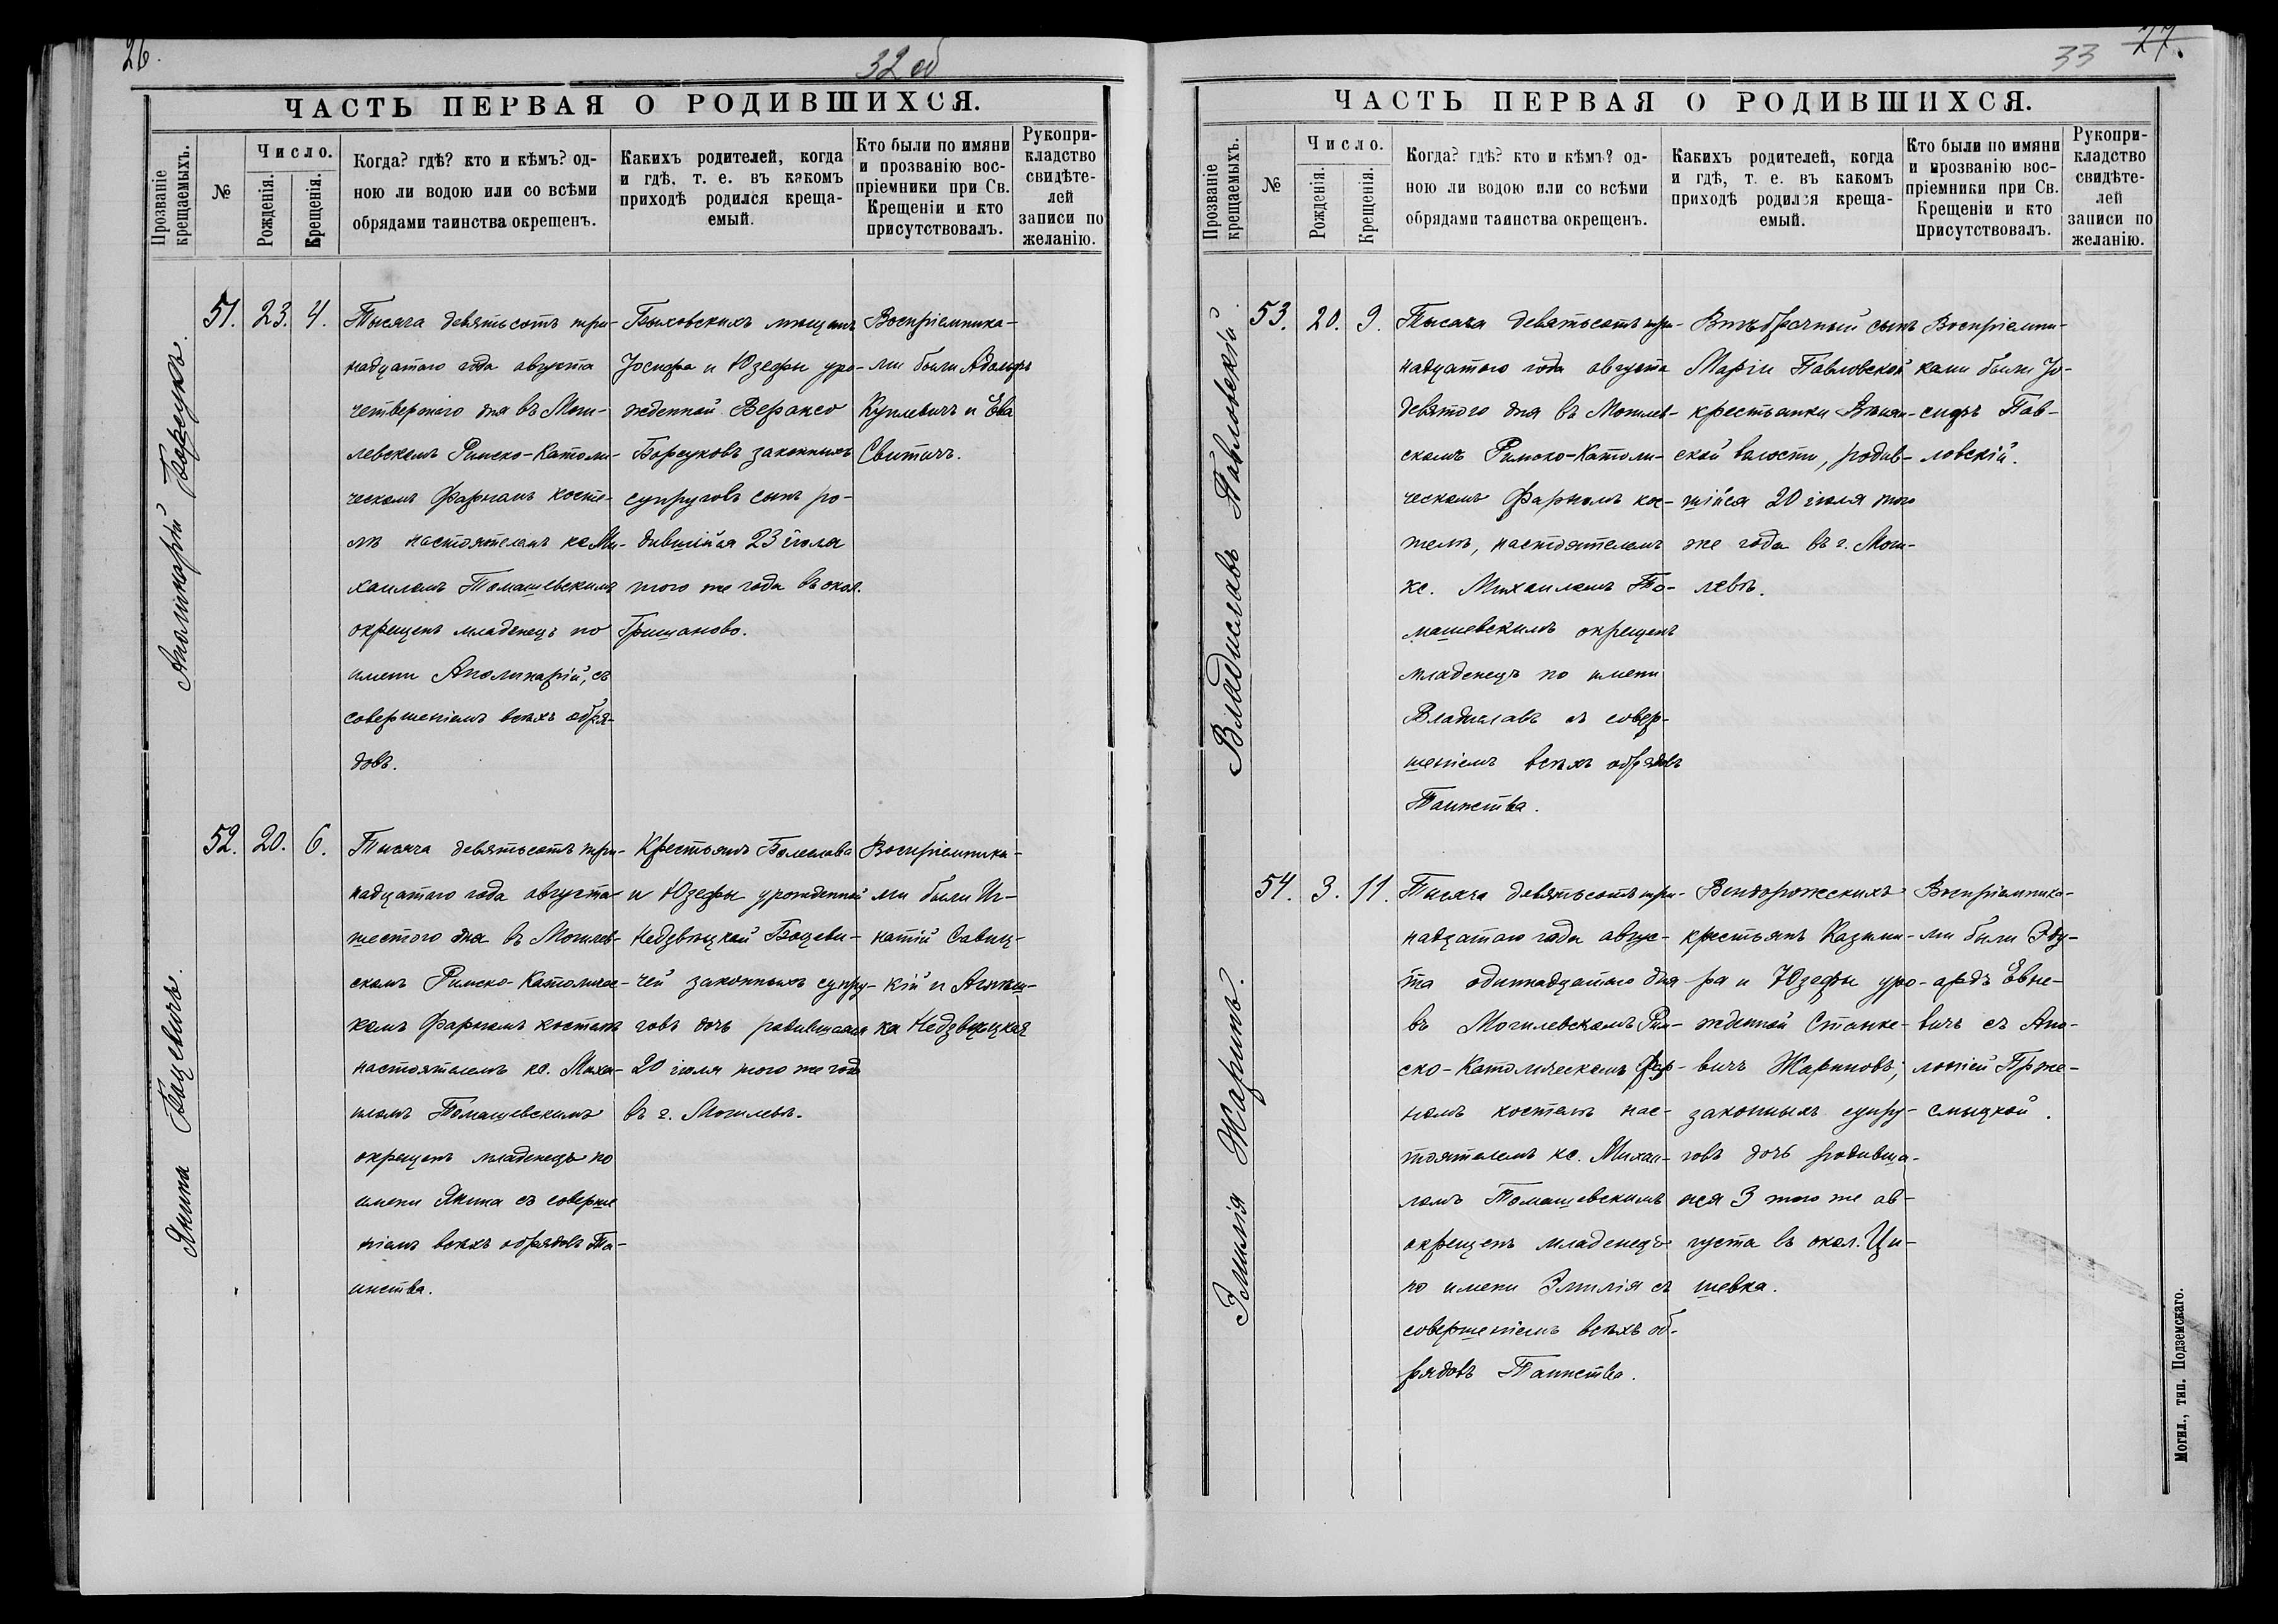 26.
32 об
ЧАСТЬ ПЕРВАЯ О РОДИВШИХСЯ.
Прозваніе крещаемыхъ.
№
Число.
Рожденія.
Крещенія.
Когда? гдѣ? кто и кѣмъ? од-
ною ли водою или со всѣми
обрядами таинства окрещенъ.
Какихъ родителей, когда
и гдѣ, т. е. въ какомъ
приходѣ родился креща-
емый.
Кто были по имяни
и прозванію вос-
пріемники при Св.
Крещеніи и кто
присутствовалъ.
Рукопри-
кладство
свидѣте-
лей
записи по
желанію.
Аполинарій Борсукъ.
51.
23.
4.
Тысяча девятьсотъ три-
надцатаго года августа
четвертаго дня въ Моги-
левскомъ Римско-Католи-
ческомъ Фарномъ косте-
лѣ настоятелемъ кс. Ми-
хаиломъ Томашевскимъ
окрещенъ младенецъ по
имени Аполинарій, съ
совершеніемъ всѣхъ обря-
довъ.
Быховскихъ мѣщанъ
Іосифа и Юзефы уро-
жденной Верэнсо
Борсуковъ законныхъ
супруговъ сынъ ро-
дившійся 23 іюля
того же года въ окол.
Грищаново.
Воспріемника-
ми были Адольфъ
Куплевичъ и Ева
Свитичъ.
Янина Бацевичъ.
52.
20.
6.
Тысяча девятьсотъ три-
надцатаго года августа
шестого дня въ Могилев-
скомъ Римско-Католичес-
комъ Фарномъ костелѣ
настоятелемъ кс. Миха-
иломъ Томашевскимъ
окрещенъ младенецъ по
имени Янина съ соверше
ніемъ всѣхъ обрядовъ Та-
инства.
Крестьянъ Болеслава
и Юзефы урожденной
Недзвѣцкой Бацеви-
чей законныхъ супру-
говъ дочь родившаяся
20 іюля того же года
въ г. Могилевѣ.
Воспріемника-
ми были Иг-
натій Савиц-
кій и Агнѣш-
ка Недзвѣцкая
33
27.
ЧАСТЬ ПЕРВАЯ О РОДИВШИХСЯ.
Прозваніе крещаемыхъ.
№
Число.
Рожденія.
Крещенія.
Когда? гдѣ? кто и кѣмъ? од-
ною ли водою или со всѣми
обрядами таинства окрещенъ.
Какихъ родителей, когда
и гдѣ, т. е. въ какомъ
приходѣ родился креща-
емый.
Кто были по имяни
и прозванію вос-
пріемники при Св.
Крещеніи и кто
присутствовалъ.
Рукопри-
кладство
свидѣте-
лей
записи по
желанію.
Владиславъ Павловскій.
53.
20.
9.
Тысяча девятьсотъ три-
надцатаго года августа
девятого дня въ Могилев-
скомъ Римско-Католи-
ческомъ Фарномъ кос-
телѣ, настоятелемъ
кс. Михаиломъ То-
машевскимъ окрещенъ
младенецъ по имени
Владиславъ съ совер-
шеніемъ всѣхъ обрядовъ
Таинства.
Внѣбрачный сынъ
Маріи Павловской
крестьянки
ской волости, родив-
шійся 20 іюля того
же года въ г. Моги-
левѣ.
Воспріемни-
ками были Іо-
сифъ Пав-
ловскій.
Эмилія Жаринъ.
54.
3.
11.
Тысяча девятьсотъ три-
надцатаго года авгус-
та одиннадцатаго дня
въ Могилевскомъ Рим-
ско-Католическомъ Фар-
номъ костелѣ нас-
тоятелемъ кс. Михаи-
ломъ Томашевскимъ
окрещенъ младенецъ
по имени Эмилія съ
совершеніемъ всѣхъ об-
рядовъ Таинства.
Вендорожскихъ
крестьянъ Казими-
ра и Юзефы уро-
жденной Станке-
вичъ Жариновъ,
законныхъ супру-
говъ дочь родивша-
яся 3 того же ав-
густа въ окол. Ци-
шевка.
Воспріемника-
ми были Эду-
ардъ Евне-
вичъ съ Апо-
лоніей Прже-
смыцкой.
Могил., тип. Подземскаго.